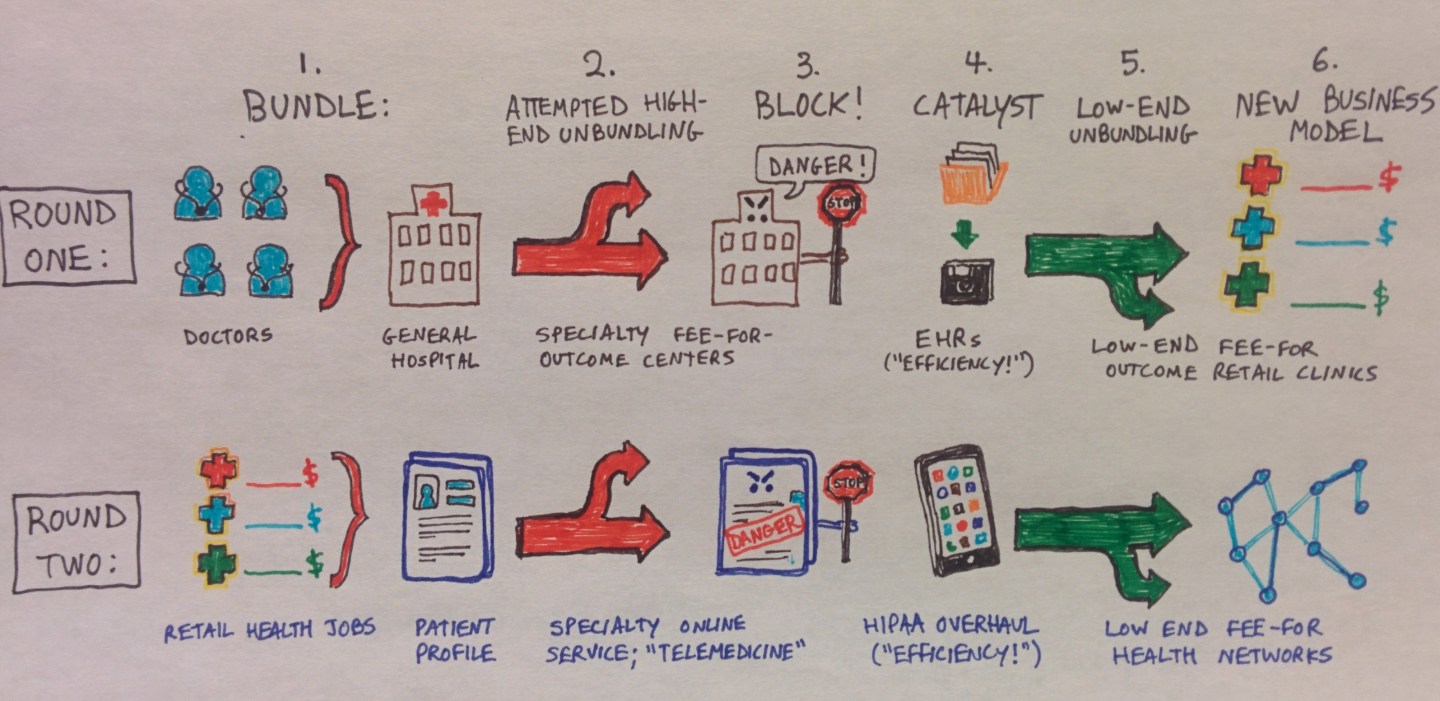 1.
BUNDLE:
2.
ATTEMPTED HIGH-
END UNBUNDLING
3.
BLOCK!
4.
CATALYST
5.
LOW-END
UNBUNDLING
6.
NEW BUSINESS
MODEL
ROUND
ONE:
DANGER!
STOP
$
$
$
DOCTORS
GENERAL
HOSPITAL
SPECIALTY FEE-FOR-
OUTCOME CENTERS
EHRs
("EFFICIENCY!")
LOW-END FEE-FOR
OUTCOME RETAIL CLINICS
ROUND
TWO:
$
$
$
DANGER
STOP
RETAIL HEALTH JOBS
PATIENT
PROFILE
SPECIALTY ONLINE
SERVICE; "TELEMEDICINE"
HIPAA OVERHAUL
("EFFICIENCY!")
LOW END FEE-FOR
HEALTH NETWORKS